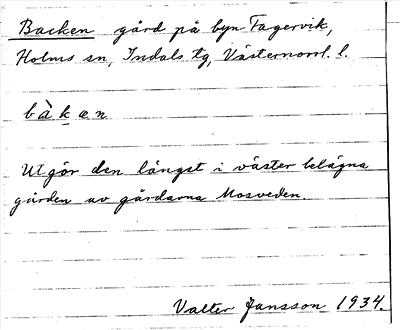 Backen gård på byn Fagervik,
Holms sn, Indals tg, Västernorrl. l.
bàkæn
Utgör den längst i väster belägna
gården av gårdarna Mosveden.
Valter Jansson 1934.